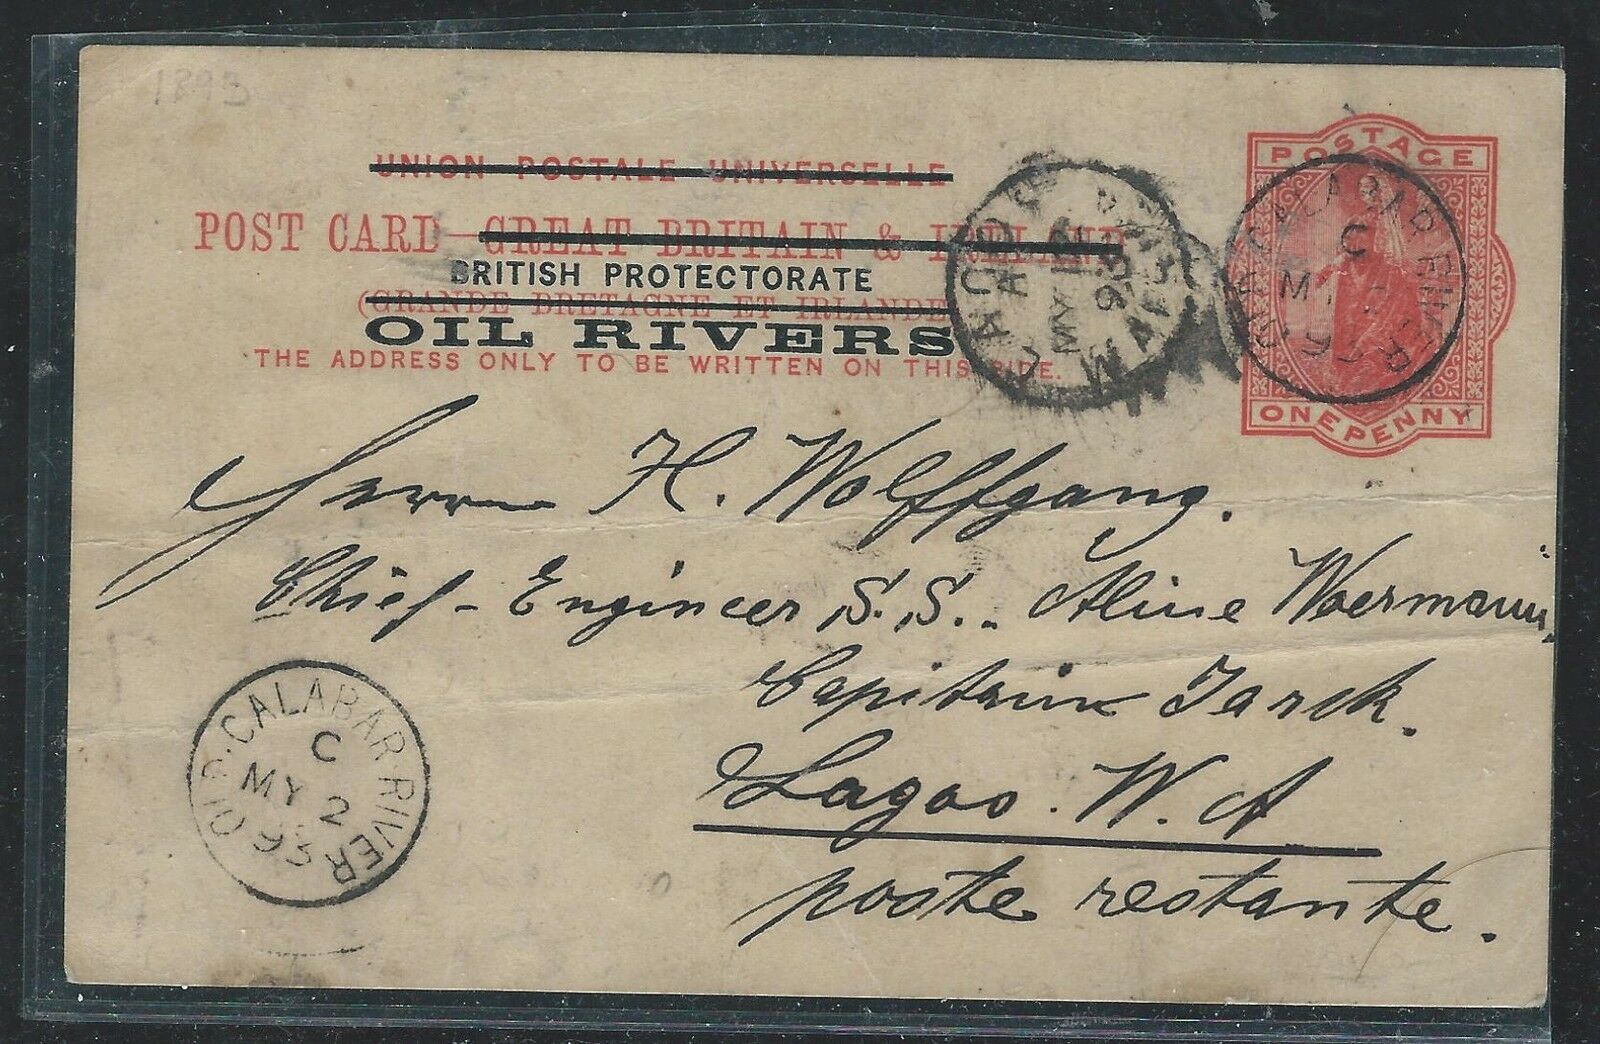 1893
UNION POSTALE UNIVERSELLE
POST CARD—GREAT BRITAIN & IRELAND
BRITISH PROTECTORATE
(GRANDE BRETAGNE ET IRLANDE
OIL RIVERS
THE ADDRESS ONLY TO BE WRITTEN ON THIS SIDE.
MY 12
93
W. AFRICA
POSTAGE
ONE PENNY
OLD·CALABAR·RIVER
C
MY 2
93
Herrn H. Wolffgang.
Chief-Engineer S.S. Aline Woermann,
Capitain Jarck.
Lagos. W. A
poste restante.
OLD·CALABAR·RIVER
C
MY 2
93